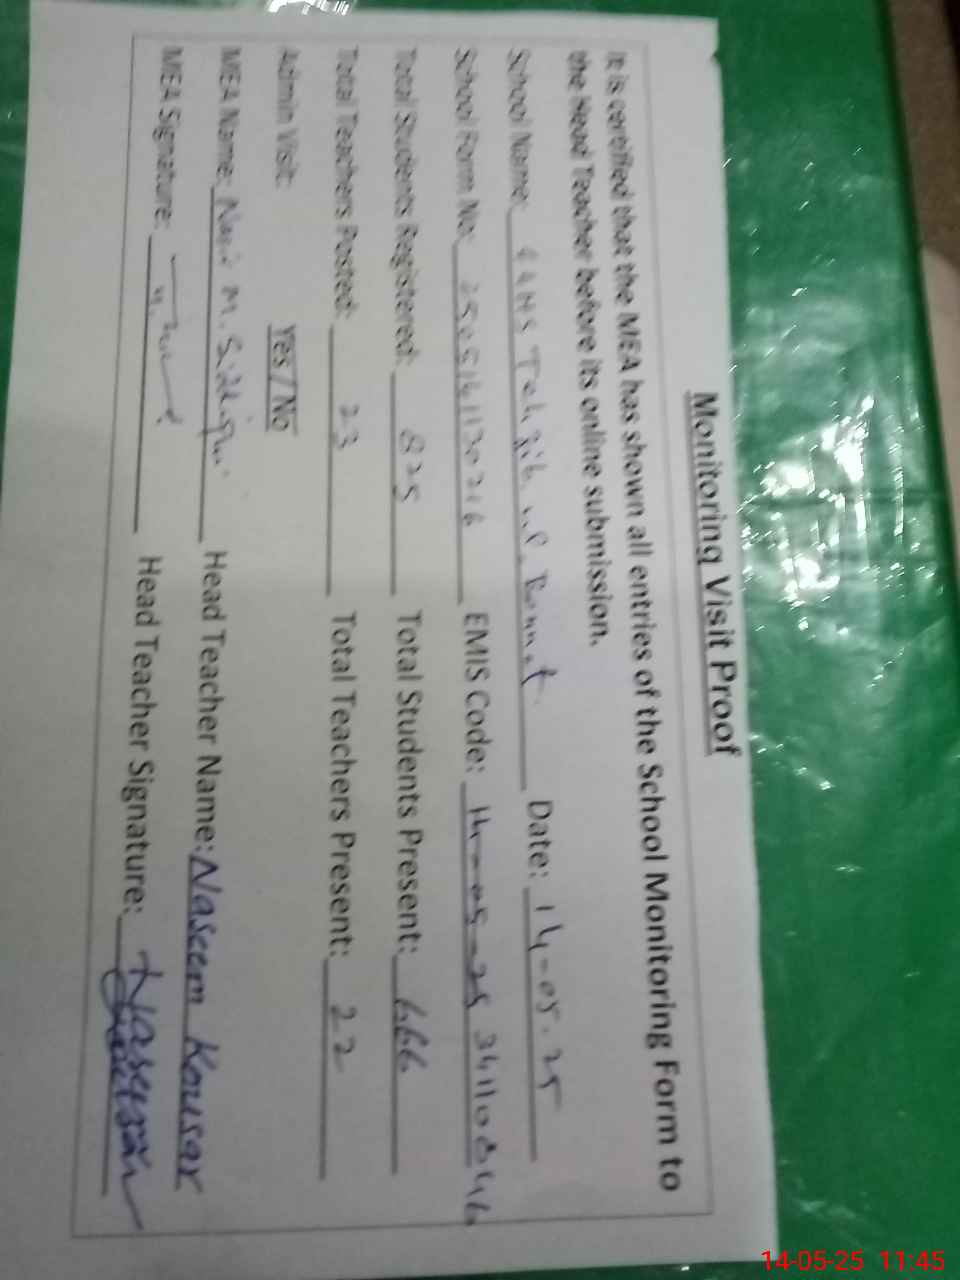 Monitoring Visit Proof
It is certified that the MEA has shown all entries of the School Monitoring Form to
the Head Teacher before its online submission.
School Name: GGHS Tehzib ul Bannat Date: 14-05-25
School Form No: EMIS Code: 14-05-25 34110046
Total Students Registered: 825 Total Students Present: 666
Total Teachers Posted: 23 Total Teachers Present: 22
Admin Visit: Yes / No
MEA Name: M. Siddiqui Head Teacher Name: Naseem Kousar
MEA Signature: Head Teacher Signature: Naseem
14-05-25 11:45